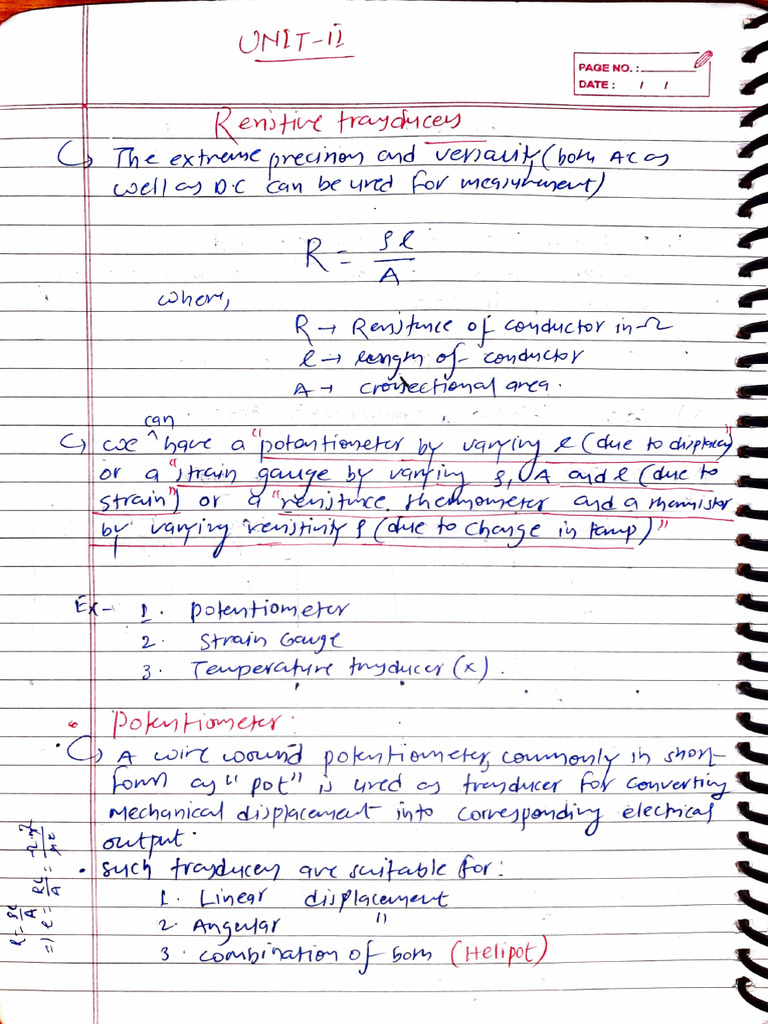 UNIT-II
PAGE NO. :
DATE : / /
Resistive transducers
The extreme precision and versality (both AC as
well as D.C can be used for measurement)
R = ρℓ / A
where,
R → Resistance of conductor in Ω
ℓ → length of conductor
A → crossectional area.
can
we ^ have a "potentiometer by varying ℓ (due to displacy)"
or a "strain gauge by varying ρ, A and ℓ (due to
strain)" or a "resistance thermometer and a thermistor
by varying resistivity ρ (due to change in temp)"
Ex- 1. Potentiometer
2. Strain Gauge
3. Temperature transducer (x).
Potentiometer:
A wire wound potentiometer, commonly in short-
form as "pot" is used as transducer for converting
Mechanical displacement into corresponding electrical
output.
• such transducers are suitable for:
1. Linear displacement
2. Angular "
3. combination of both (Helipot)
R = ρℓ / A